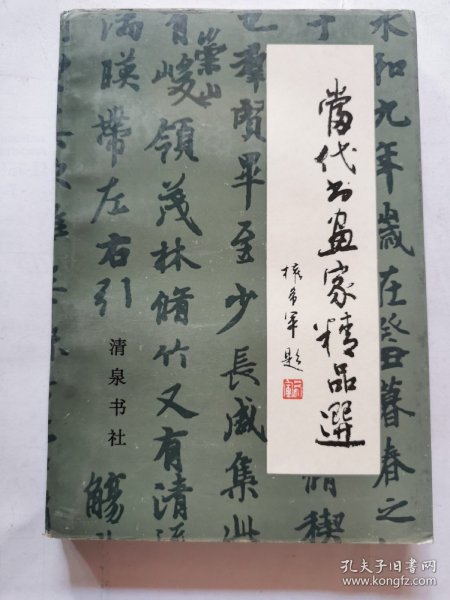 當代书画家精品選
题
清泉书社
永和九年歲在癸丑暮春之
也羣賢畢至少長咸集此
崇山
有峻領茂林脩竹又有清流
暎帶左右引
觴
脩稧
孔夫子旧书网
www.kongfz.com